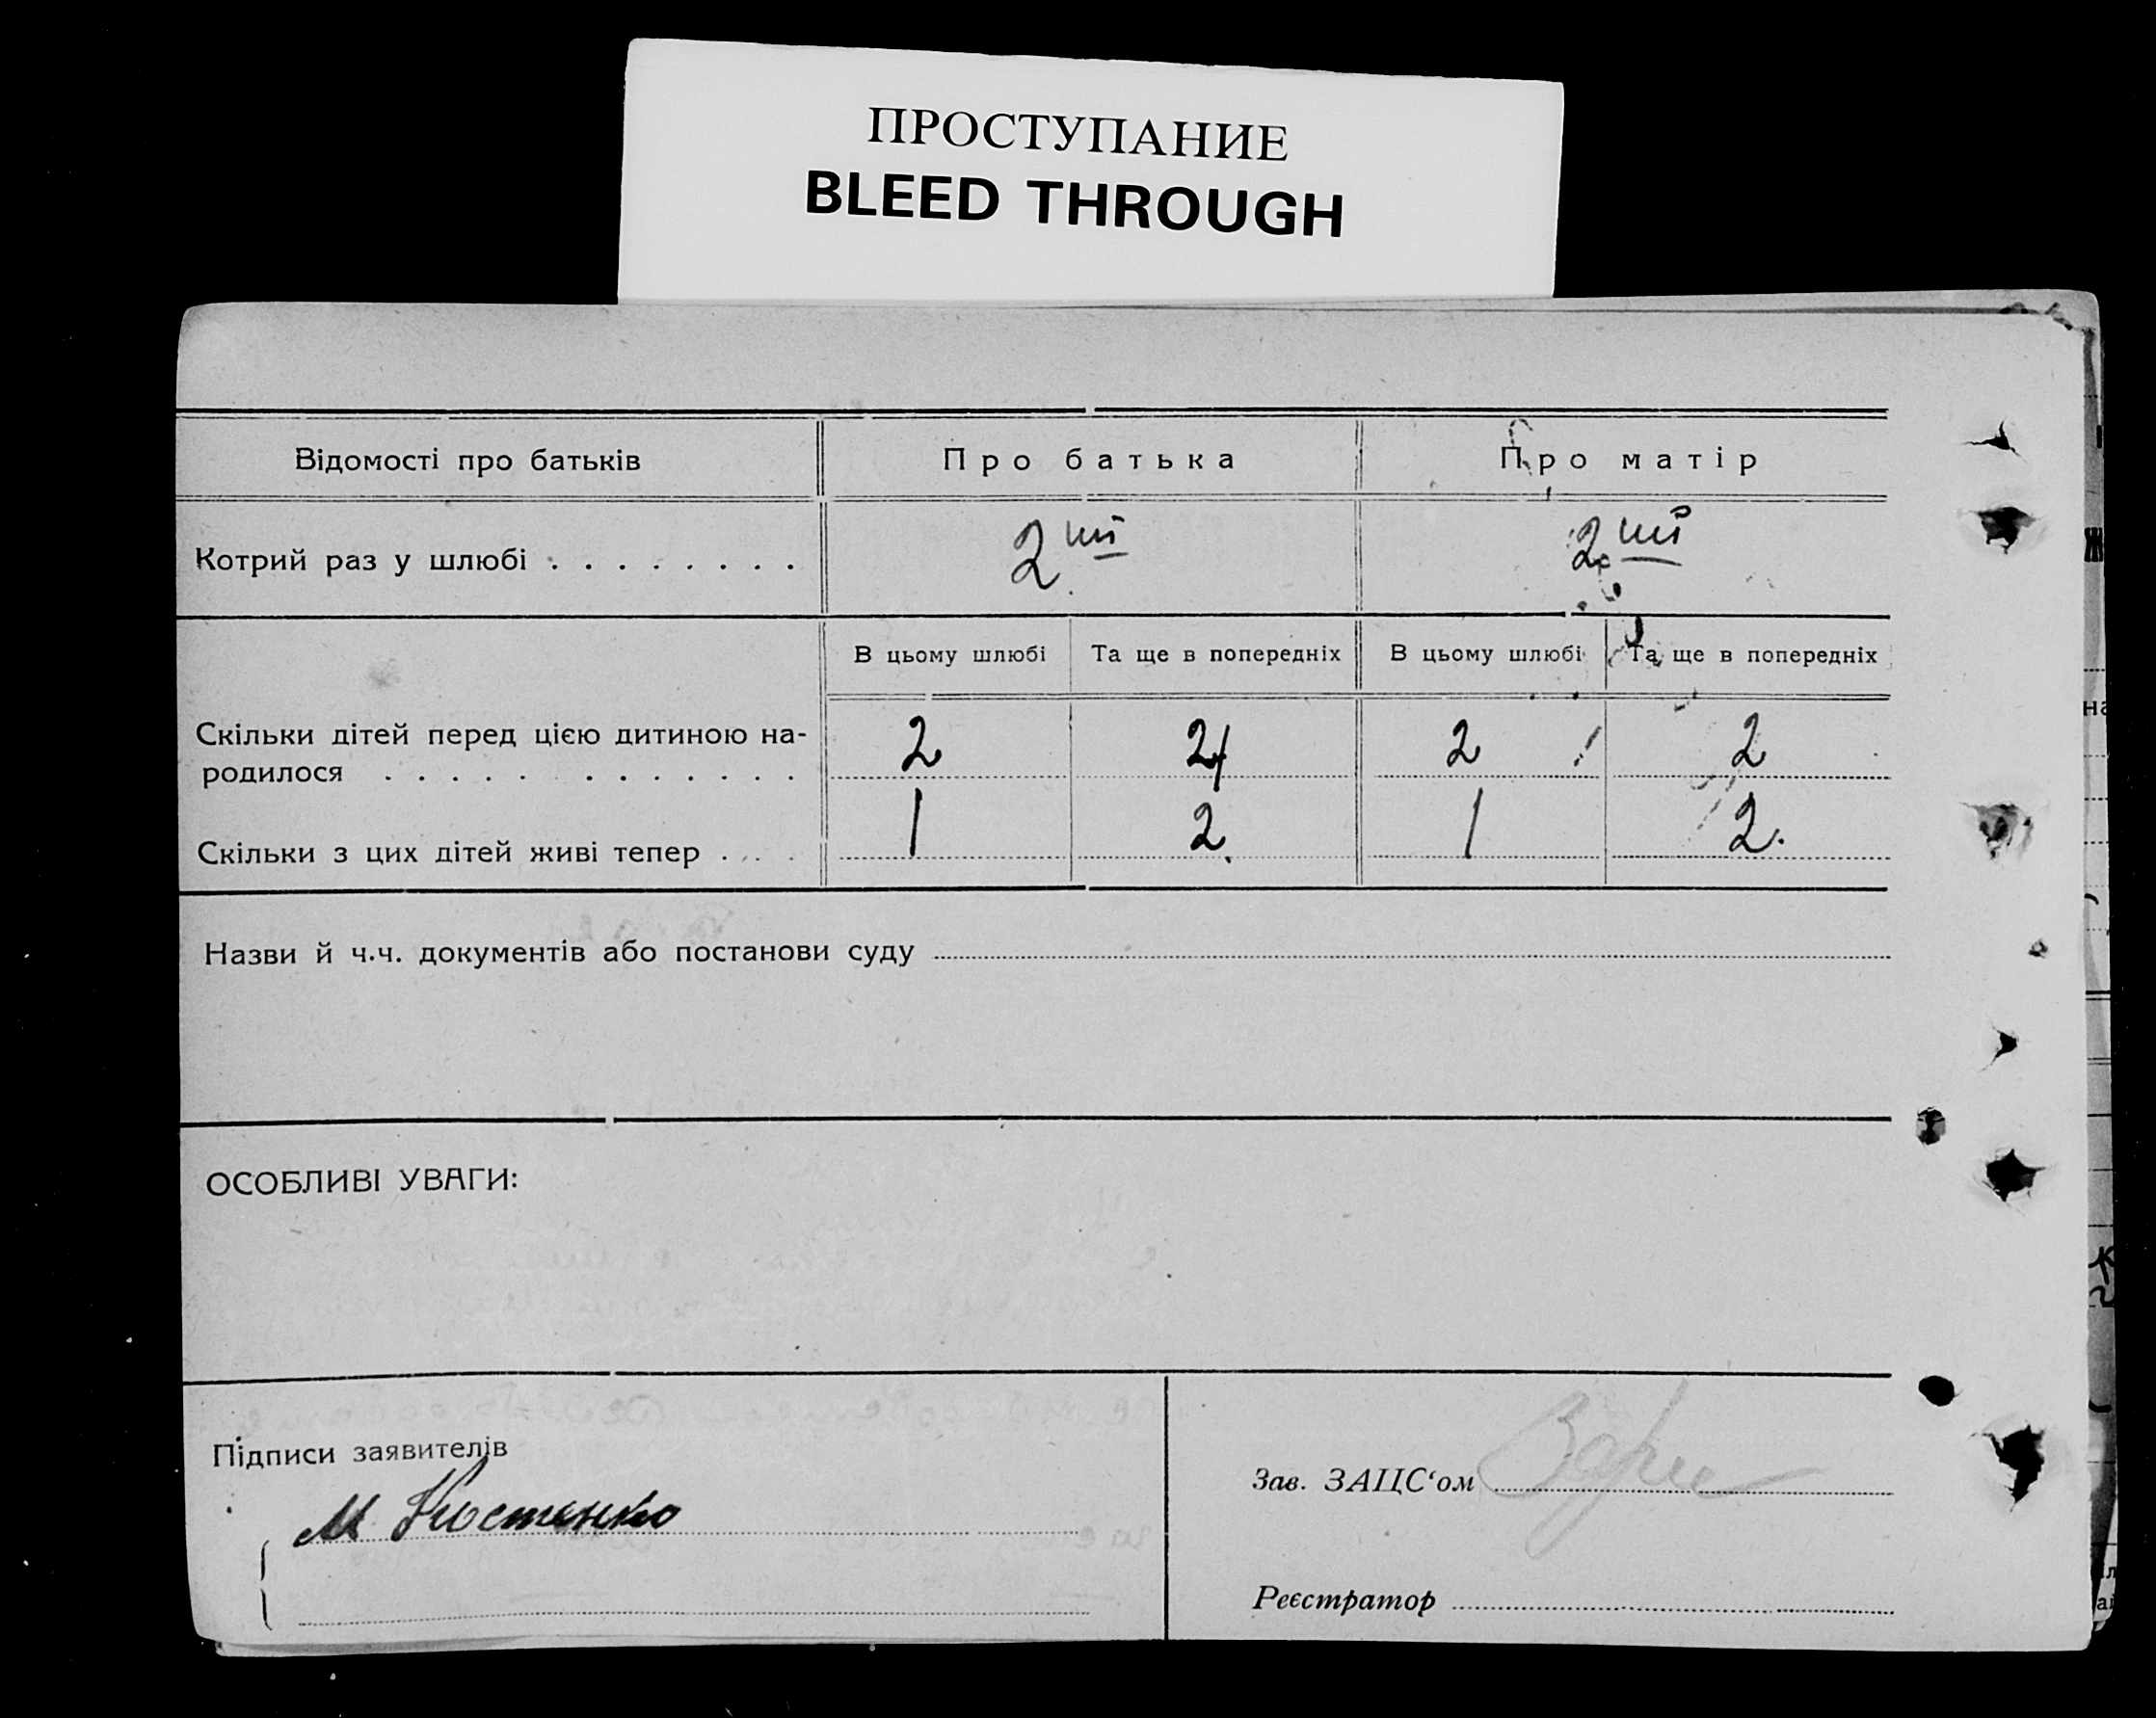 ПРОСТУПАНИЕ
BLEED THROUGH
Відомості про батьків Про батька Про матір
Котрий раз у шлюбі . . . . . . . . 2 ий 2 ий
В цьому шлюбі Та ще в попередніх В цьому шлюбі Та ще в попередніх
Скільки дітей перед цією дитиною на-
родилося . . . . . . . . . . . . 2 4 2 2
Скільки з цих дітей живі тепер . . . 1 2. 1 2.
Назви й ч.ч. документів або постанови суду
ОСОБЛИВІ УВАГИ:
Підписи заявителів
М Костенко
Зав. ЗАЦС‘ом
Реєстратор